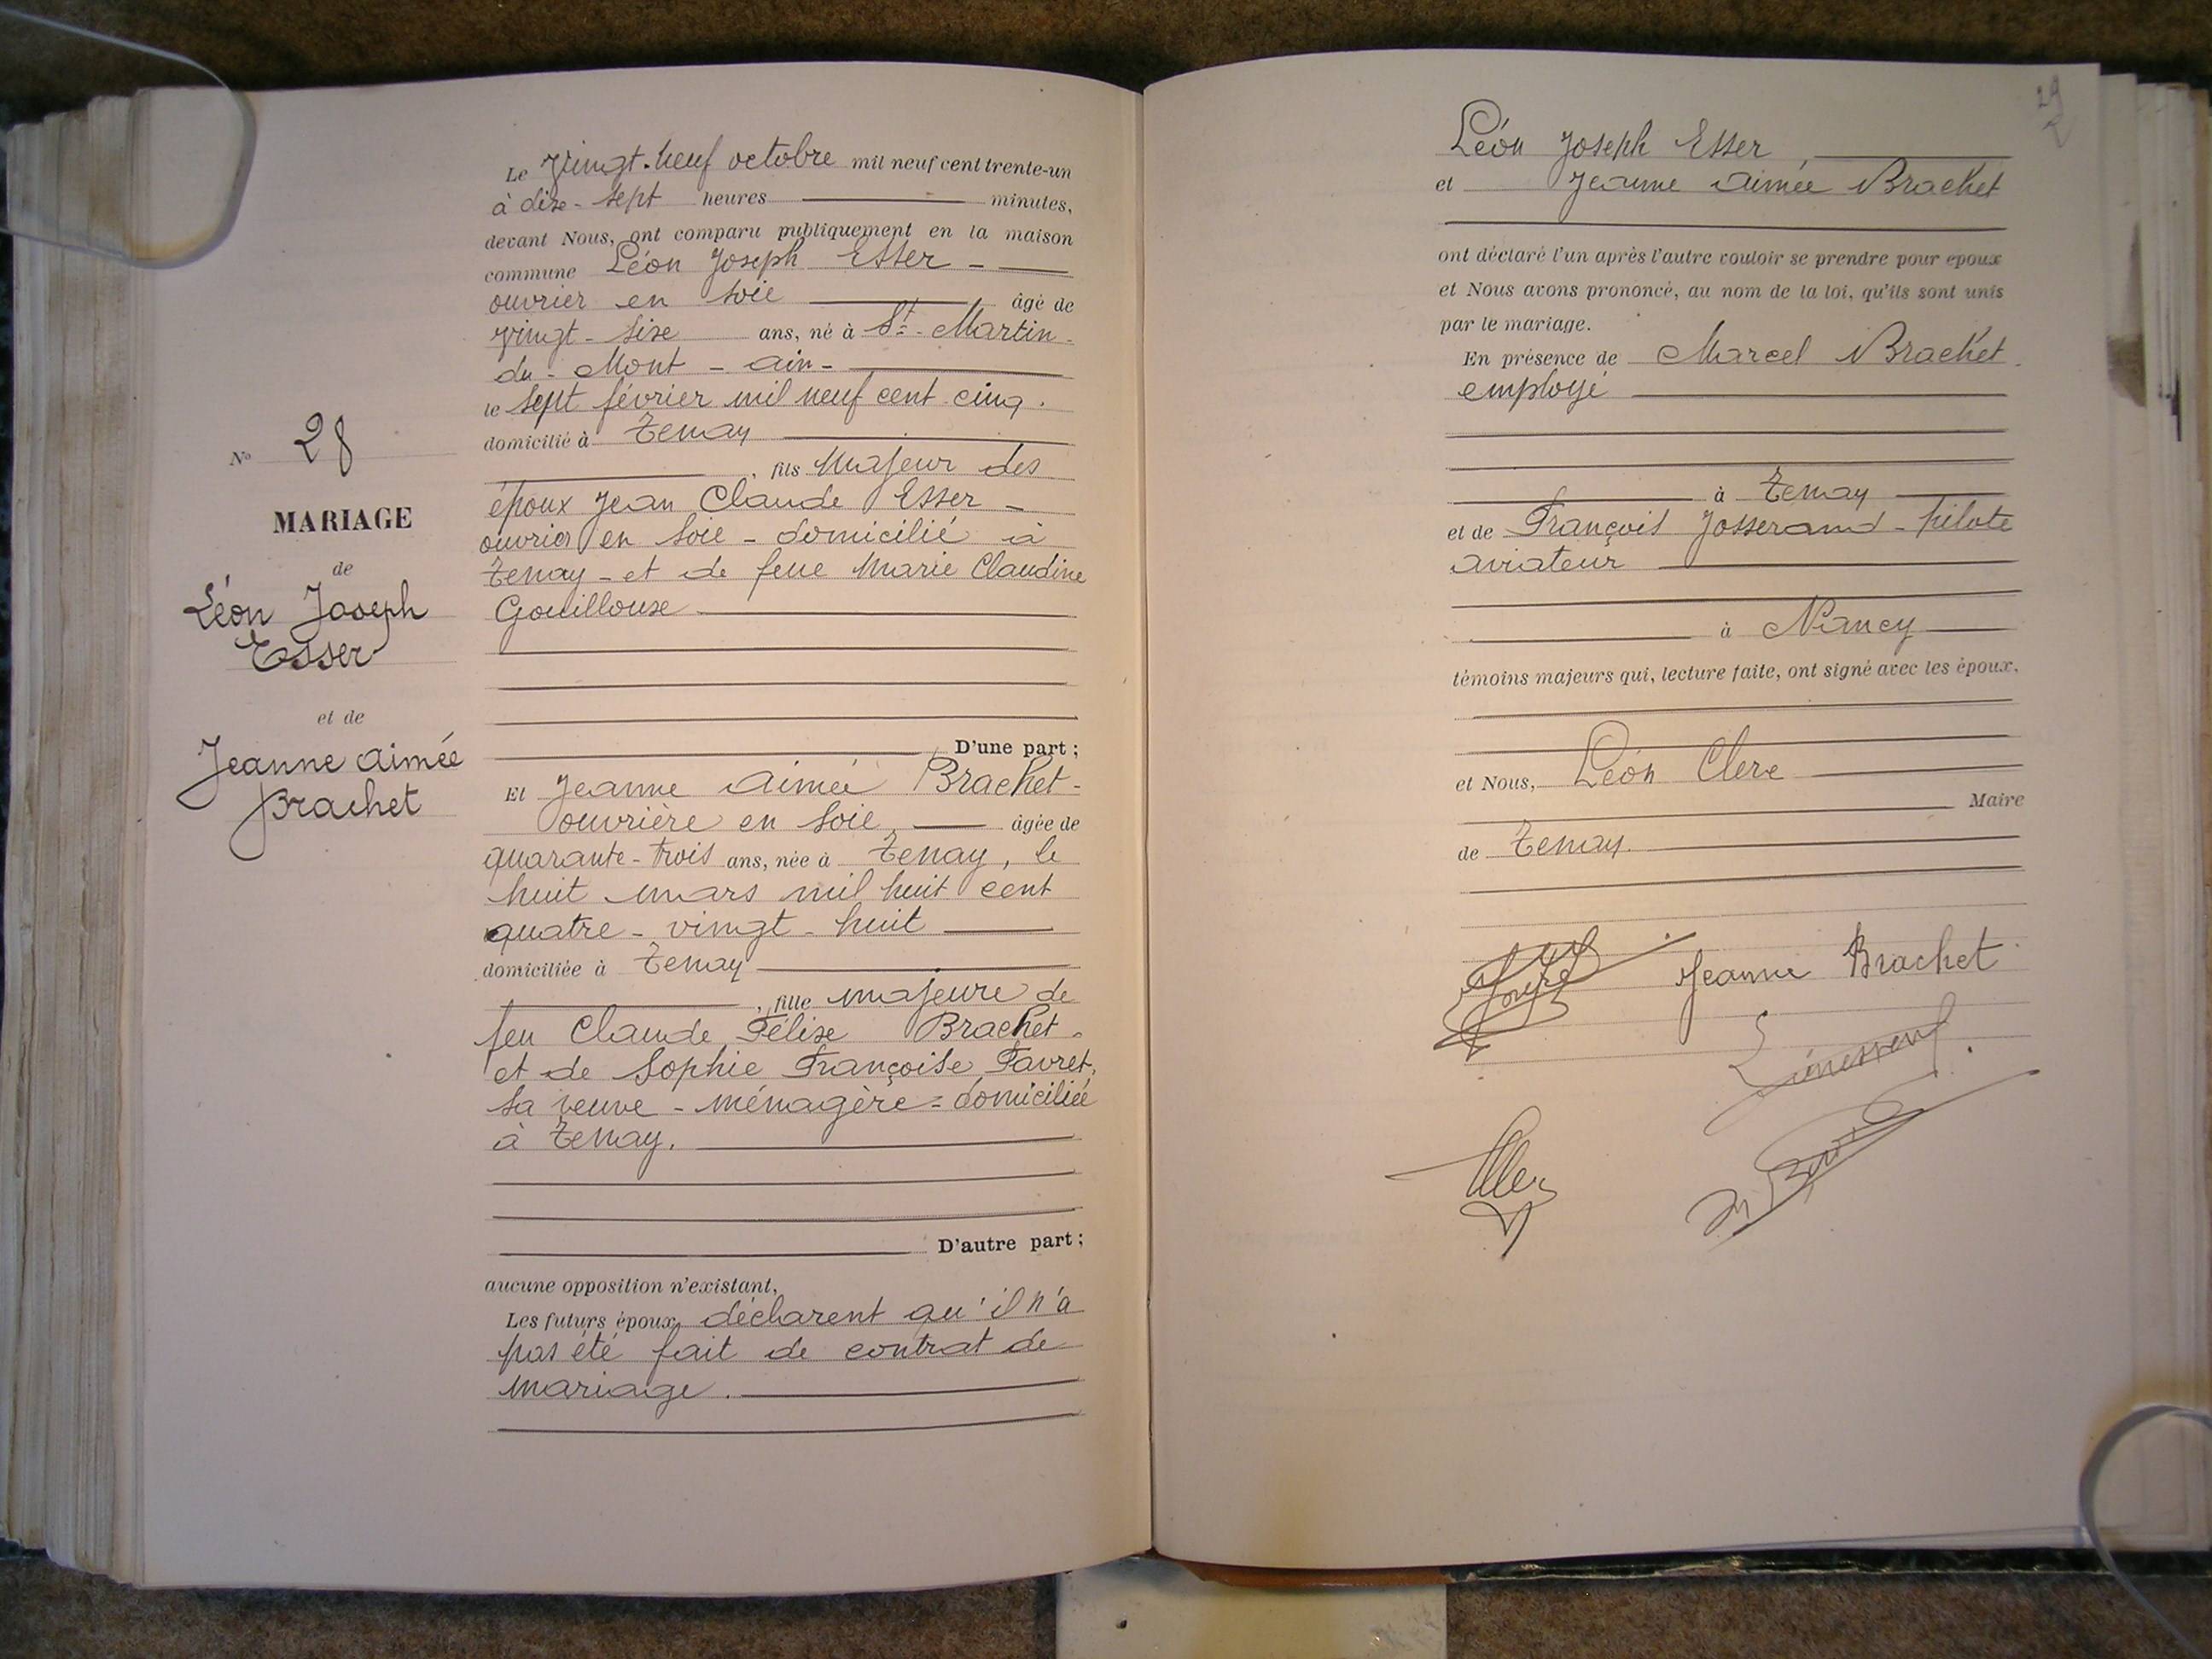 Le Vingt-neuf octobre mil neuf cent trente-un
à dix-sept heures minutes,
devant Nous, ont comparu publiquement en la maison
commune Léon Joseph Esser -
ouvrier en soie, âgé de
vingt-sixe ans, né à St-Martin-
du-Mont - Ain -
le sept février mil neuf cent cinq.
domicilié à Tenay
, fils majeur des
époux Jean Claude Esser -
ouvrier en soie - domicilié à
Tenay - et de feue Marie Claudine
Gouillouse
No 28
MARIAGE
de
Léon Joseph
Esser
et de
Jeanne Aimée
Brachet
D'une part ;
Et Jeanne Aimée Brachet -
ouvrière en soie, âgée de
quarante-trois ans, née à Tenay, le
huit mars mil huit cent
quatre-vingt-huit
domiciliée à Tenay
, fille majeure de
feu Claude Félixe Brachet -
et de Sophie Françoise Favret,
sa veuve - ménagère - domiciliée
à Tenay.
D'autre part ;
aucune opposition n'existant,
Les futurs époux déclarent qu'il n'a
pas été fait de contrat de
mariage.
29
Léon Joseph Esser,
et Jeanne Aimée Brachet
ont déclaré l'un après l'autre vouloir se prendre pour epoux
et Nous avons prononcé, au nom de la loi, qu'ils sont unis
par le mariage.
En présence de Marcel Brachet
employé
à Tenay
et de François Josserand - pilote
aviateur
à Nancy
témoins majeurs qui, lecture faite, ont signé avec les époux,
et Nous, Léon Clerc
Maire
de Tenay.
Jeanne Brachet